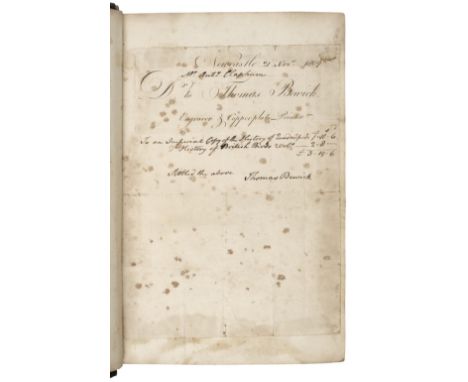 Newcastle 21 Novr.
Mr. Anty. Clapham
Dr. to Thomas Bewick
Engraver & Copperplate Printer
To an Imperial Copy of the History of Quadrupeds
History of British Birds 2 Vols. 2-8-
£ 3-19-6
Settled the above Thomas Bewick